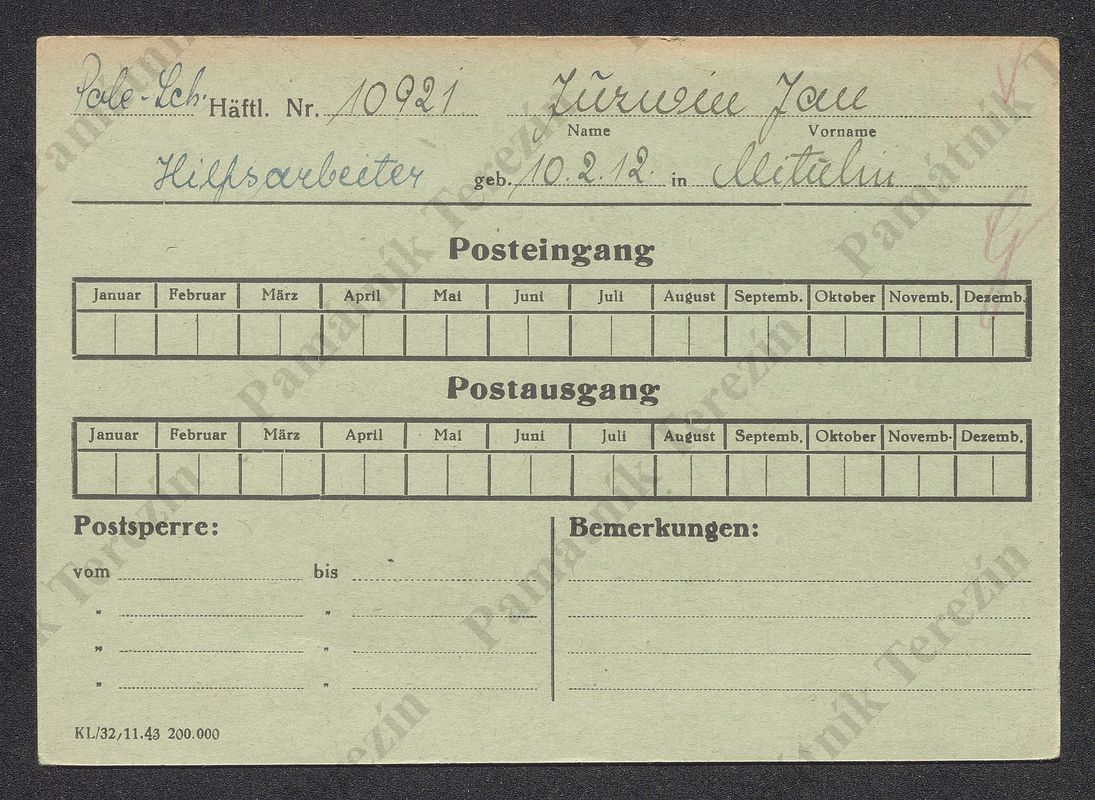 Pole-Sch. Häftl. Nr. 10921 Jūrwin Jan
Name Vorname
Hilfsarbeiter geb. 10.2.12. in Mitulin
Posteingang
Januar Februar März April Mai Juni Juli August Septemb. Oktober Novemb. Dezemb.
Postausgang
Januar Februar März April Mai Juni Juli August Septemb. Oktober Novemb. Dezemb.
Postsperre: Bemerkungen:
vom bis
" "
" "
" "
KL/32/11.43 200.000
Památník Terezín